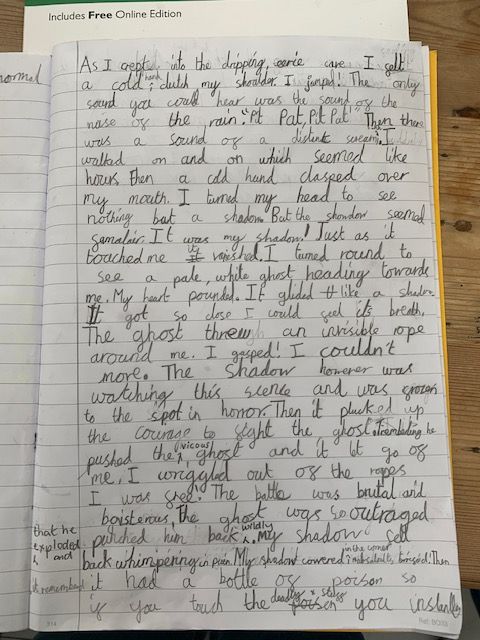 Includes Free Online Edition
normal
As I crept into the dripping, eerie cave I felt
a cold hand clutch my shoulder. I jumped! The only
sound you could hear was the sound of the
noise of the rain "Pit Pat, Pit Pat" Then there
was a sound of a distent scream. I
walked on and on which seemed like
hours. Then a cold hand clasped over
my mouth. I turned my head to see
nothing but a shadow. But the showdow seemed
gamaliar. It was my shadow! Just as it
touched me it vanished. I turned round to
see a pale, white ghost heading towards
me. My heart pounded. It glided like a shadow.
It got so close I could feel it's breath.
The ghost threw an invisible rope
around me. I gasped! I couldn't
more. The Shadow however was
watching this scence and was
to the spot in horror. Then it plucked up
the courage to fight the ghost. trembeling he
pushed the vicous ghost and it let go of
me. I wriggled out of the ropes
I was free! The battle was brutal and
boisterous. The ghost was so outraged
that he exploded and punched him back wildly. My shadow fell
back whimpering in pain. My shadow cowered in the corner bruised. Then
it remembered it had a bottle of poison so
if you touch the deadly stuff you instantley